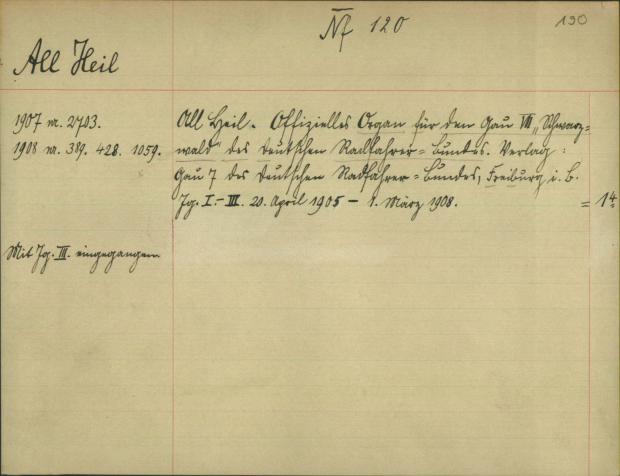 Nf 120
130
All Heil
1907 m. 2703.
1908 m. 389. 428. 1059.
All Heil. Offizielles Organ für den Gau VII „Schwarz=
wald" des Deutschen Radfahrer=Bundes. Verlag:
Gau 7 des Deutschen Radfahrer=Bundes, Freiburg i. B.
Jg. I.–III. 20. April 1905 – 1. März 1908.
= 1 4°
Mit Jg. III. eingegangen.